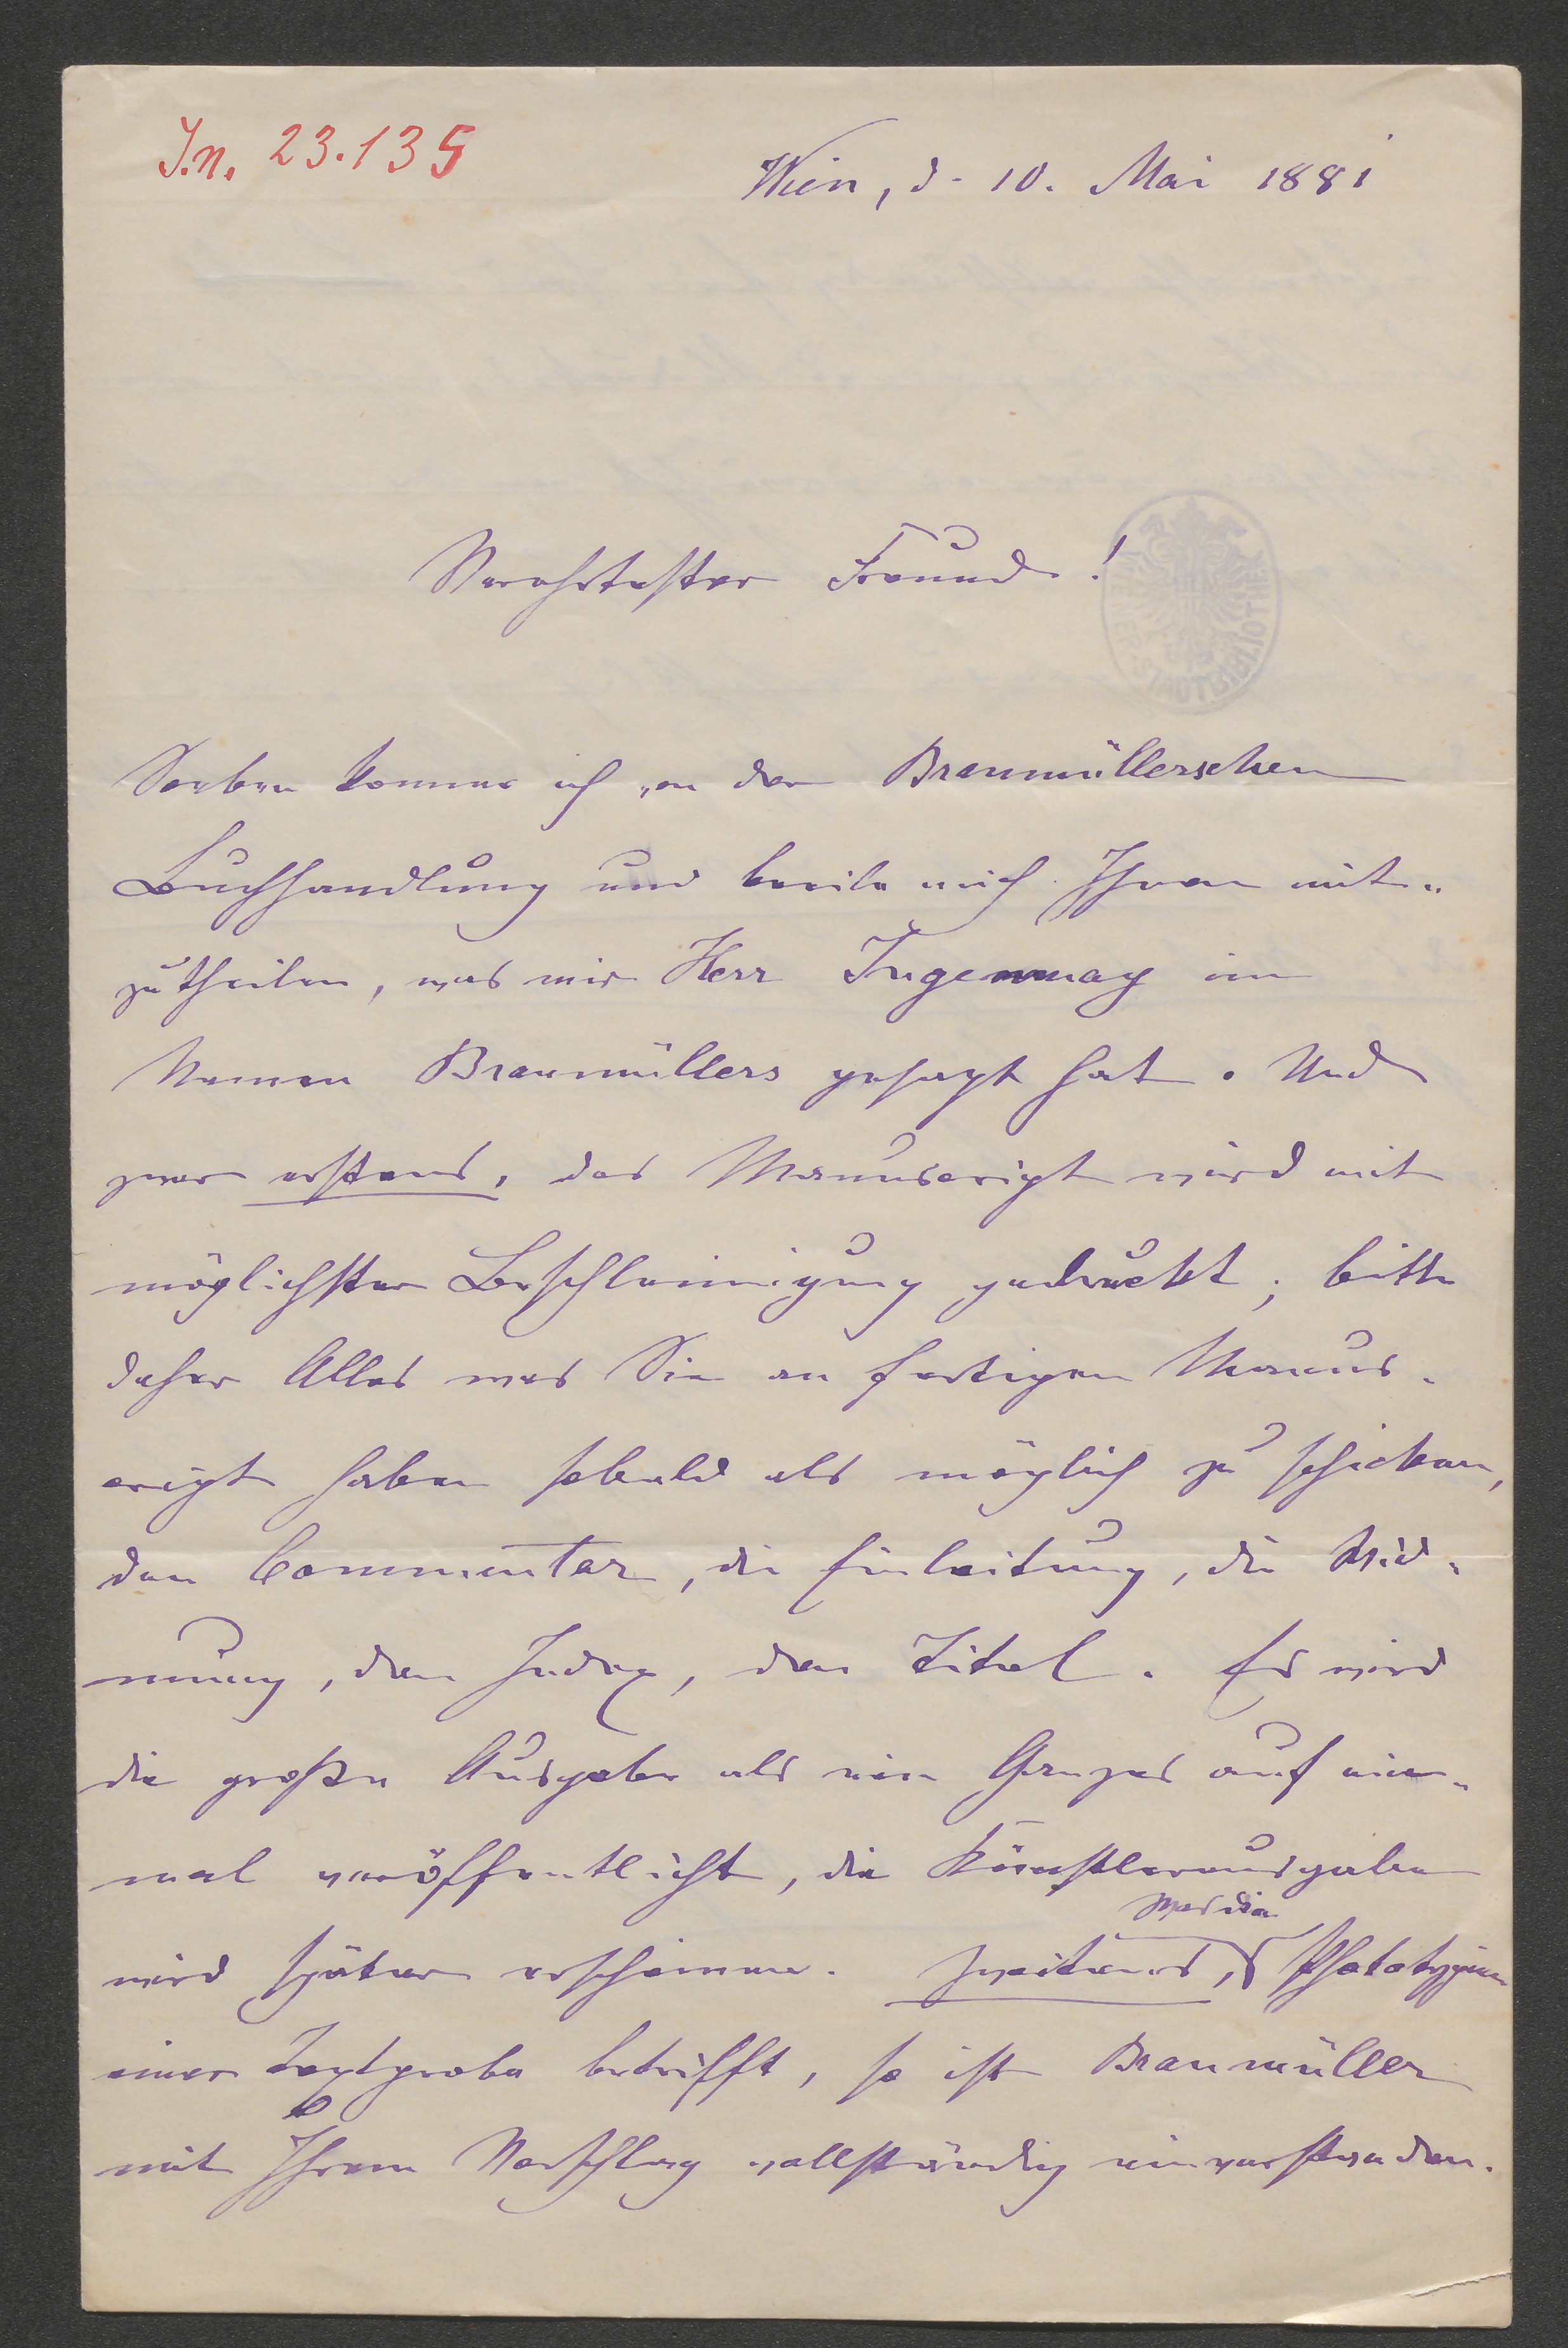 I.N. 23.135
Wien, d. 10. Mai 1881
Verehrtester Freund!
Soeben komme ich von der Braumüllerschen
Buchhandlung und beeile mich Ihnen mit-
zutheilen, was mir Herr Jugenmay im
Namen Braumüllers gesagt hat. Und
zwar erstens, das Manuscript wird mit
möglichster Beschleunigung gedruckt; bitte
daher Alles was Sie an fertigem Manus-
cript haben sobald als möglich zu schicken,
den Commentar, die Einleitung, die Wid-
mung, den Index, den Titel. Es wird
die große Ausgabe als ein Ganzes auf ein-
mal veröffentlicht, die Künstlerausgabe
was die
wird später erscheinen. Zweitens, Phototypien
einer Textprobe betrifft, so ist Braumüller
mit Ihrem Vorschlag vollständig einverstanden.